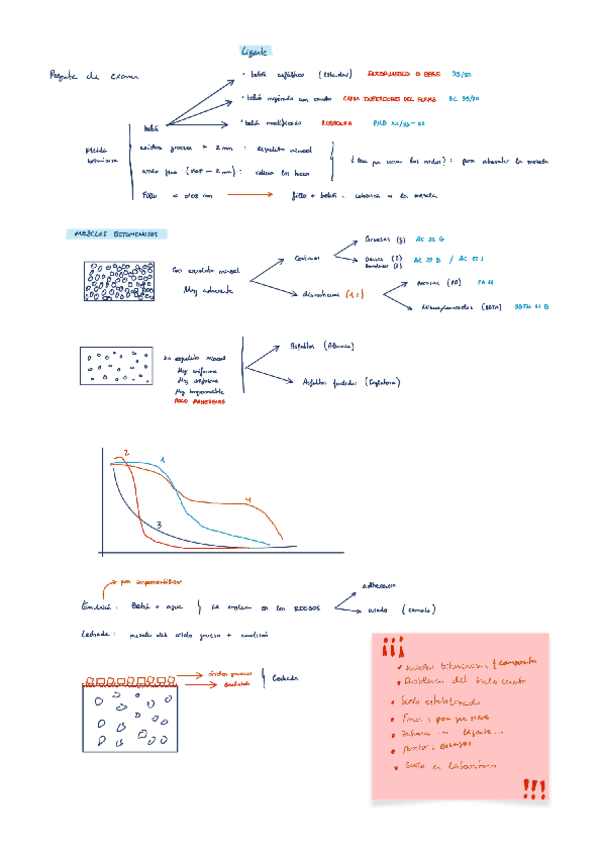 Ligante
Pregunta de examen
• betún asfáltico (estándar) INTERMEDIO O BASE 35/50
• betún mejorado con caucho CAPAS INFERIORES DEL FIRME BC 35/50
• betún modificado RODADURA PMB
betún
Mezcla bituminosa
áridos gruesos > 2 mm : esqueleto mineral
árido fino (0'063 - 2 mm) : rellena los huecos
¿Para qué sirven los áridos? : para abaratar la mezcla
Filler < 0'063 mm → filler + betún : cohesión a la mezcla
MEZCLAS BITUMINOSAS
Con esqueleto mineral
Muy adherente
Continuas
Gruesas (G) AC 22 G
Densas (D) AC 22 D / AC 22 S
Semidensas (S)
discontinuas
(PA) PA 11
(BBTM) BBTM 11 B
Sin esqueleto mineral
Muy uniforme
Muy
Muy impermeable
POCO ADHERENTE
Asfaltos (Alemania)
Asfaltos fundidos (Inglaterra)
2
1
4
3
por impermeabilizar
Emulsión : Betún + agua } se emplean en los RIEGOS
adherencia
curado
Lechada : mezcla del árido grueso + emulsión
áridos gruesos
emulsión
} Lechada
¡¡¡
• mezclas bituminosas
• Resistencia del
• Suelo estabilizado
• Firmes : para que sirve
•
• ensayos
• Suelo en laboratorio
!!!